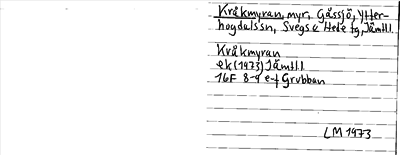 Kråkmyran, myr, Gåssjö, Ytter-
hogdals sn, Svegs & Hede tg, Jämtl.
Kråkmyran
ek (1973) Jämtl.
16F 8-9 e-f Grubban
LM 1973